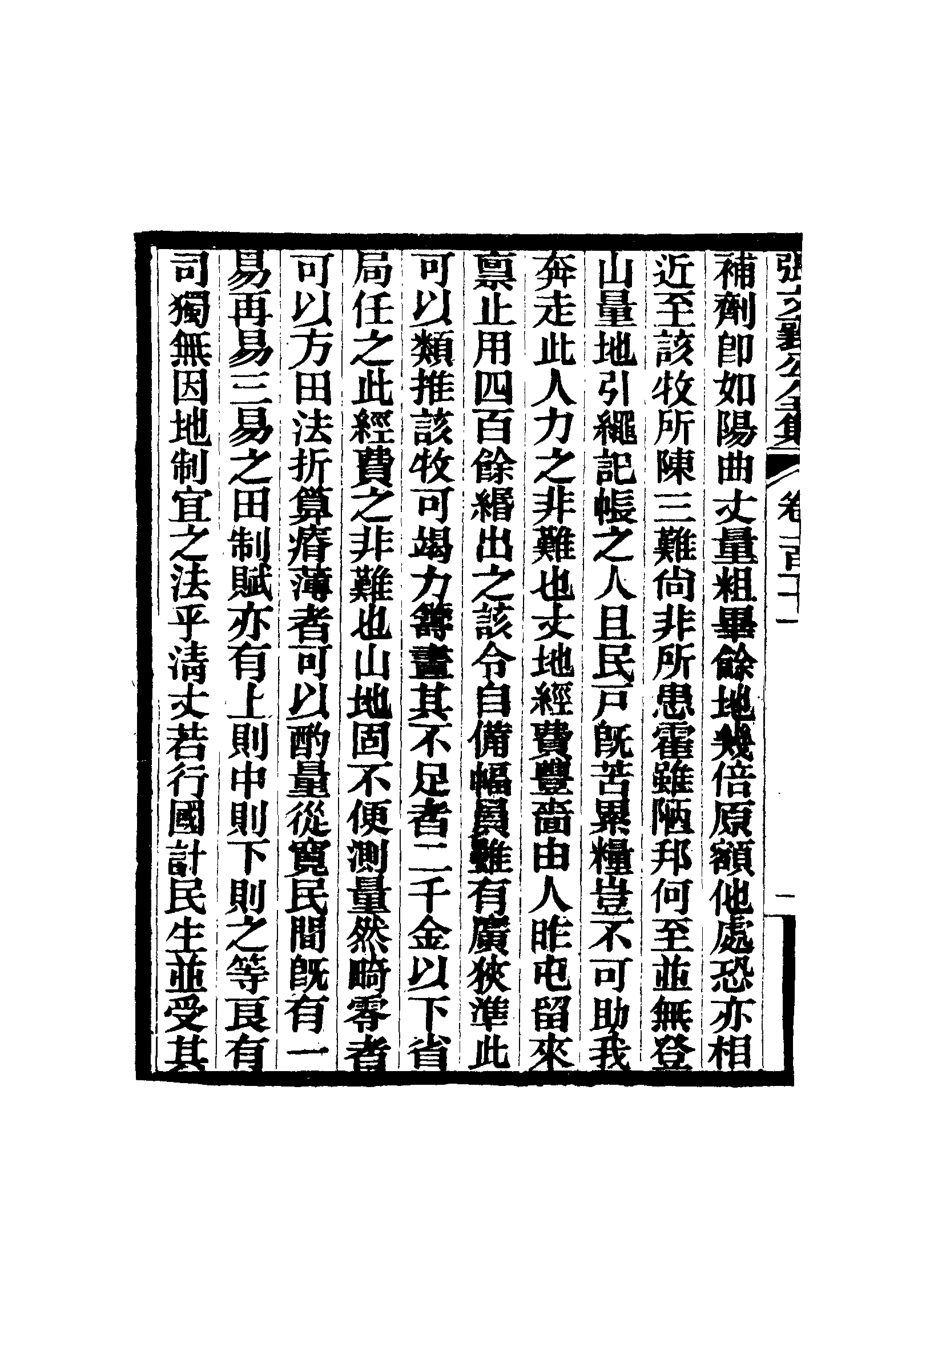 張文襄公全集 卷一百十一 一
補劑卽如陽曲丈量粗畢餘地幾倍原額他處恐亦相
近至該牧所陳三難尙非所患霍雖陋邦何至並無登
山量地引繩記帳之人且民戸旣苦累糧豈不可助我
奔走此人力之非難也丈地經費豐嗇由人昨屯留來
稟止用四百餘緡出之該令自備幅員雖有廣狹準此
可以類推該牧可竭力籌畫其不足者二千金以下省
局任之此經費之非難也山地固不便測量然畸零者
可以方田法折算瘠薄者可以酌量從寬民間旣有一
易再易三易之田制賦亦有上則中則下則之等良有
司獨無因地制宜之法乎淸丈若行國計民生並受其